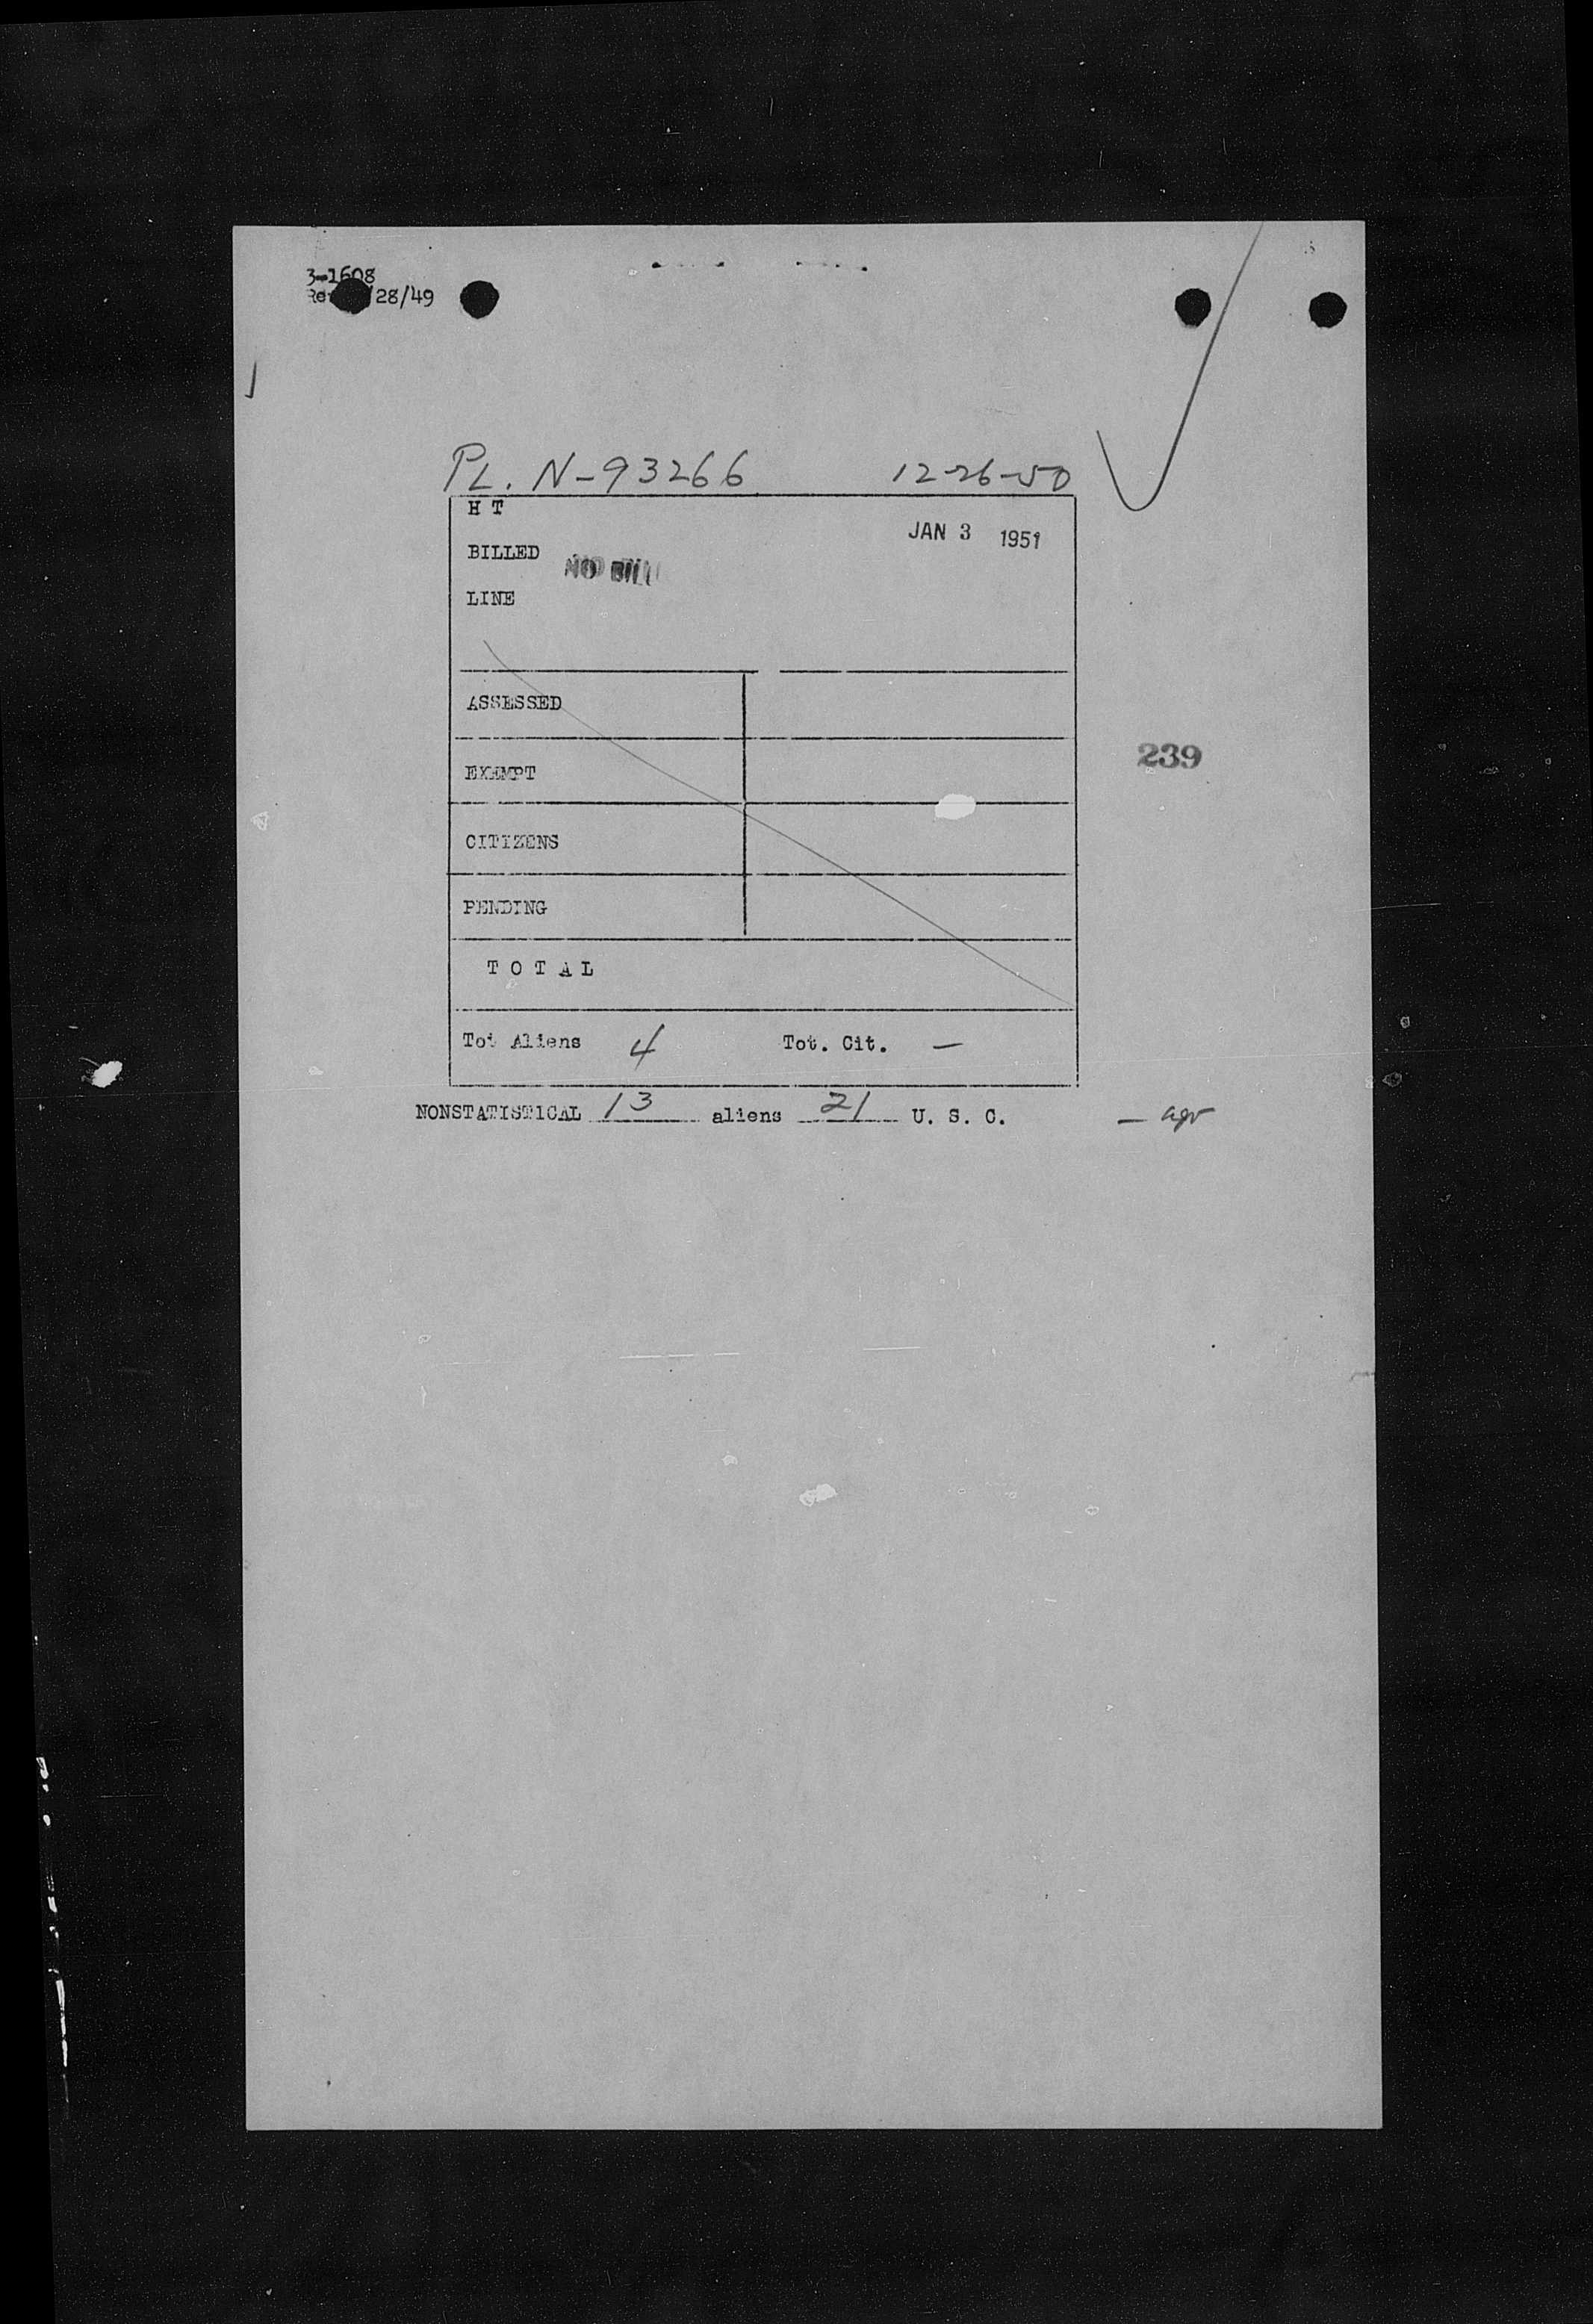 3-1608
/28/49
PL. N-93266 12-26-50
H T
JAN 3 1951
BILLED NO BILL
LINE
ASSESSED
239
EXEMPT
CITIZENS
PENDING
T O T A L
Tot Aliens 4 Tot. Cit. —
NONSTATISTICAL 13 aliens 21 U. S. C.